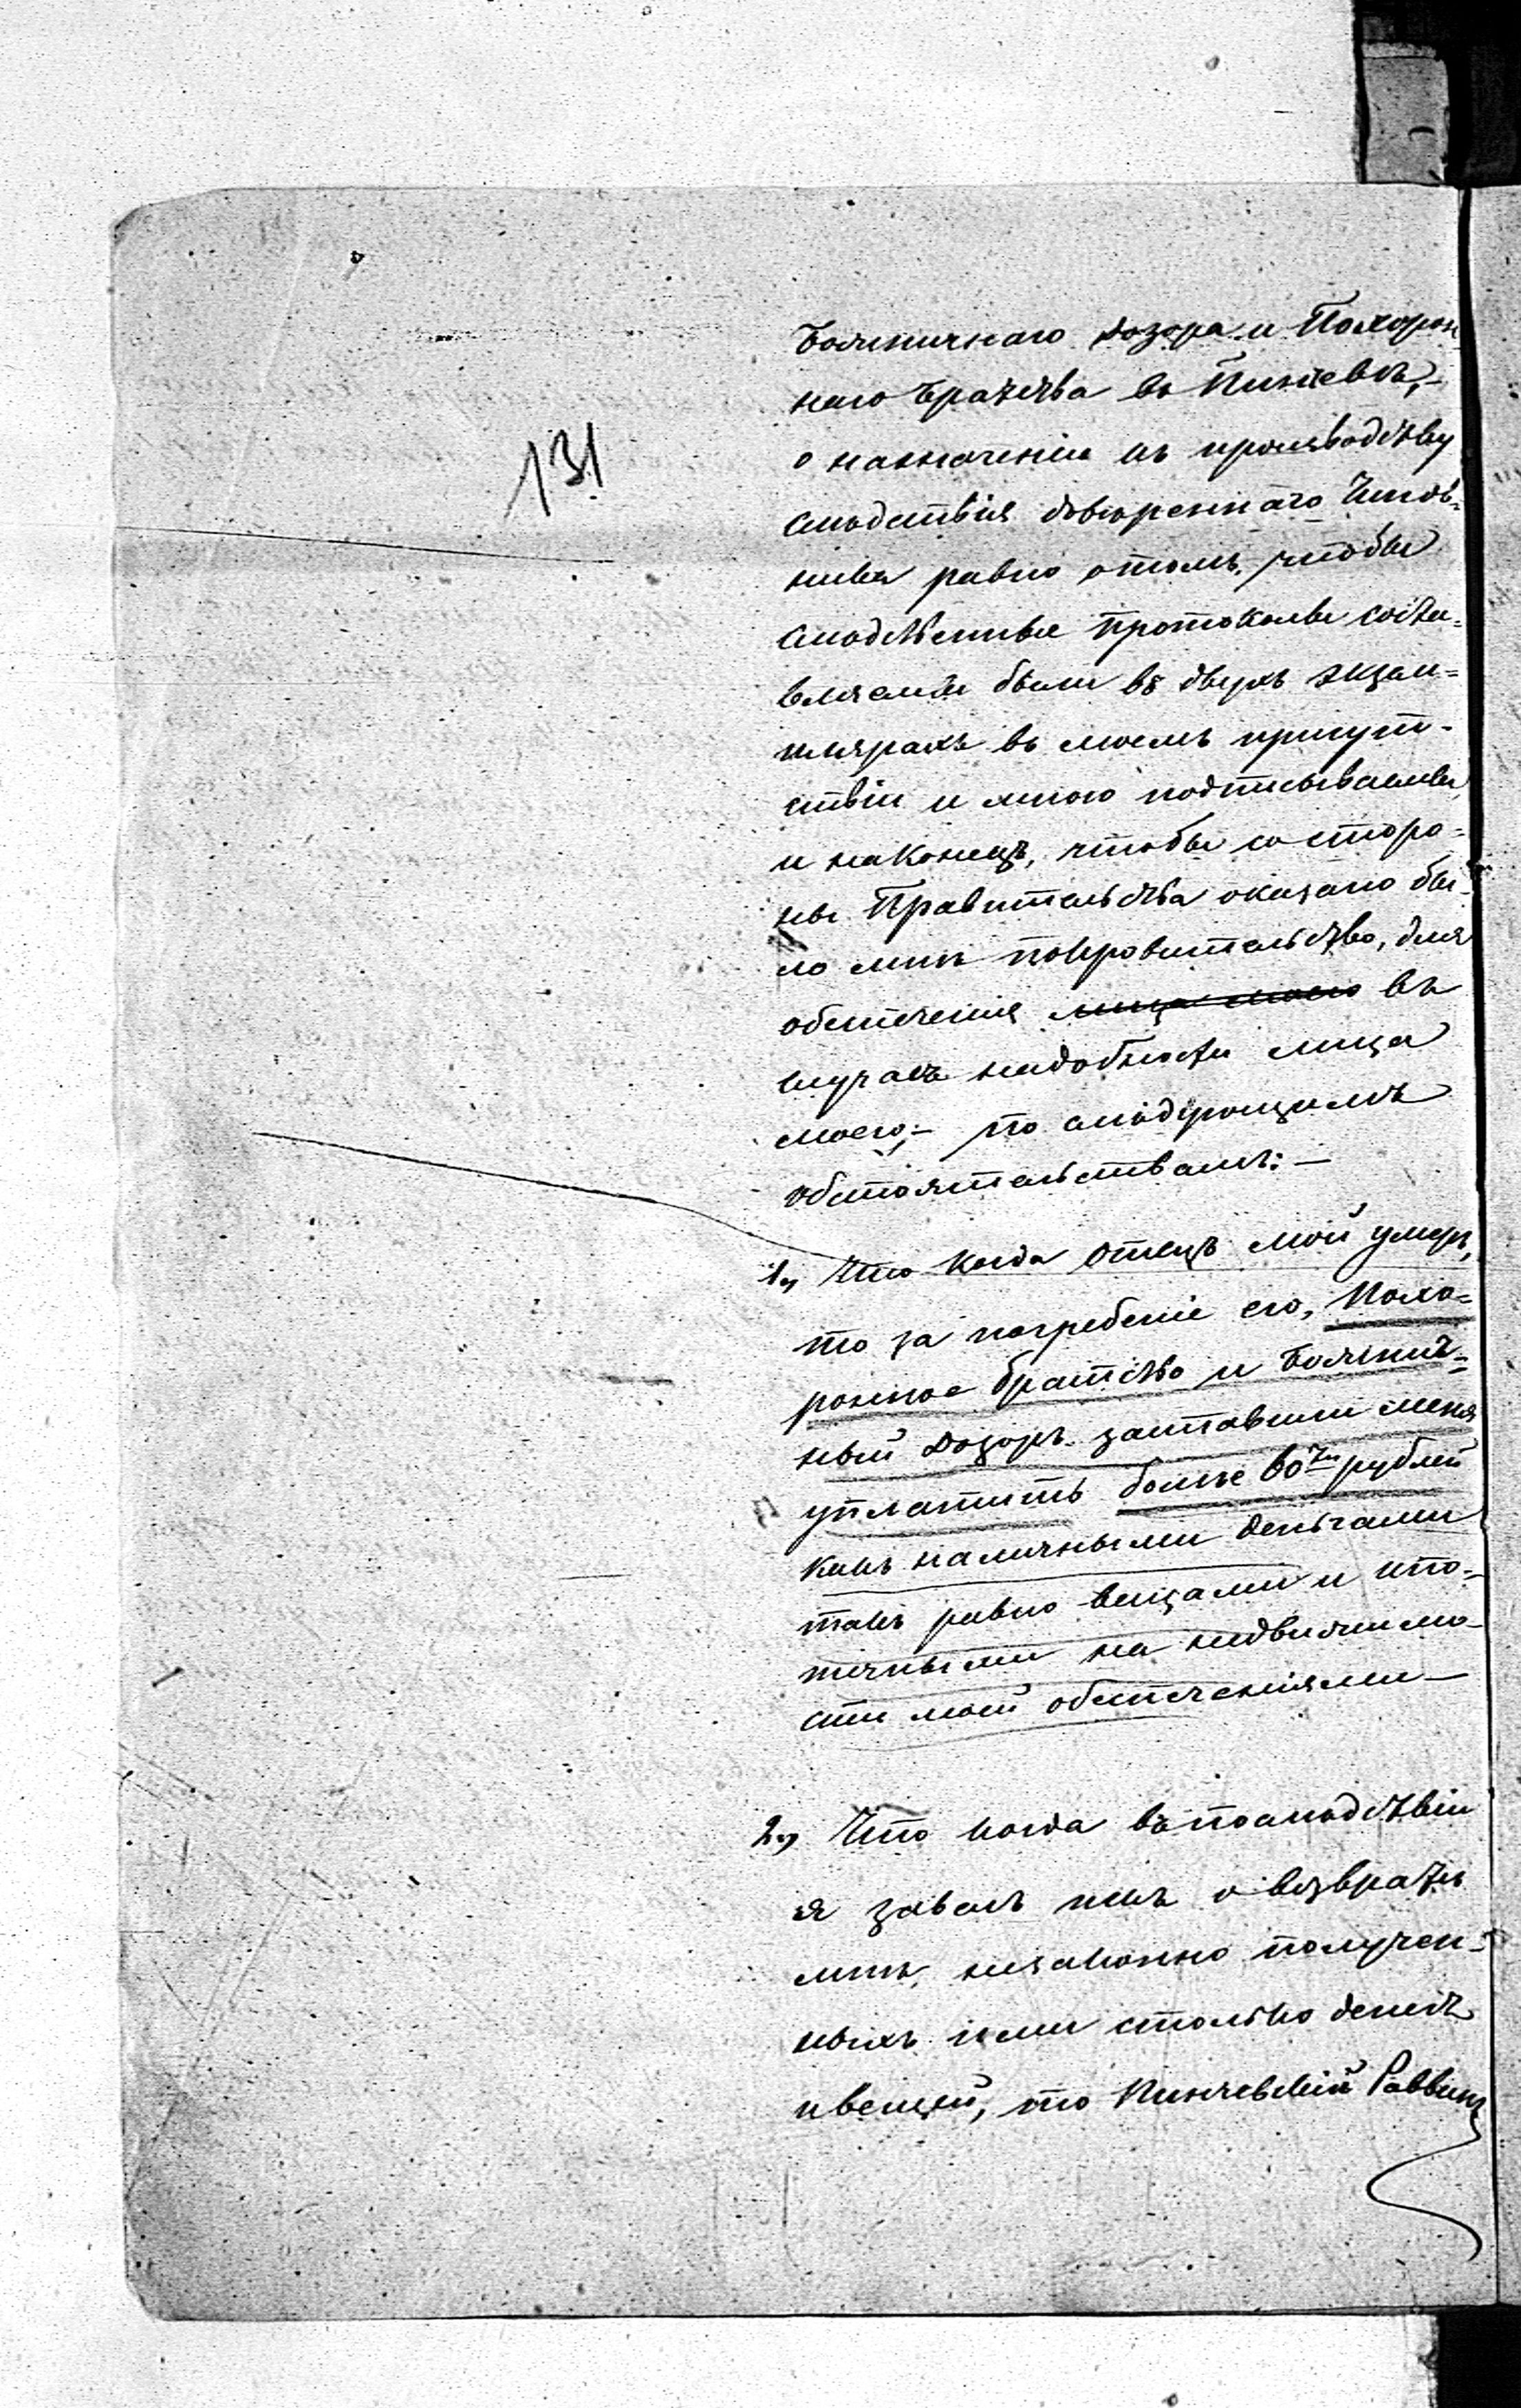 131
Божничнаго дозора и Похорон
наго Братства въ Пинчевѣ,—
о назначеніи къ производству
слѣдствія довѣреннаго Чинов-
ника равно отомъ, чтобы
слѣдственные протоколы соста-
вляемы были въ двухъ экзем-
плярахъ въ моемъ присут-
ствіи и мною подписываемы,
и наконецъ, чтобы со сторо-
ны Правительства оказано бы-
ло мнѣ покровительство, для
обеспеченія лица моего въ
случаѣ надобности лица
моего;— по слѣдующимъ
обстоятельствамъ:—
1, Что когда отецъ мой умеръ,
то за погребеніе его, Похо-
ронное братство и Божнич-
ный дозоръ заставили меня
уплатить болѣе рублей
какъ наличными деньгами
такъ равно вещами и ипо-
течными на недвижимо-
сти моей обеспеченіями—
2, Что когда въпослѣдствіи
я звалъ ихъ о возвратѣ
мнѣ, незаконно получен-
ныхъ ими столько денегъ
ивещей, то Пинчевскій Раввинъ